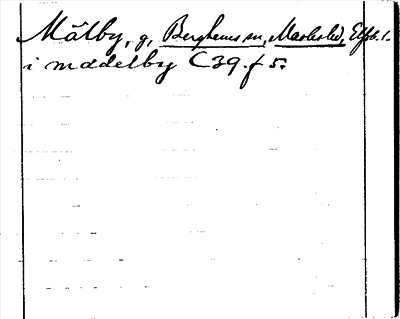 Målby, g, Berghems sn, Marks hd, Elfsb. l.
i madelby C39. f 5.